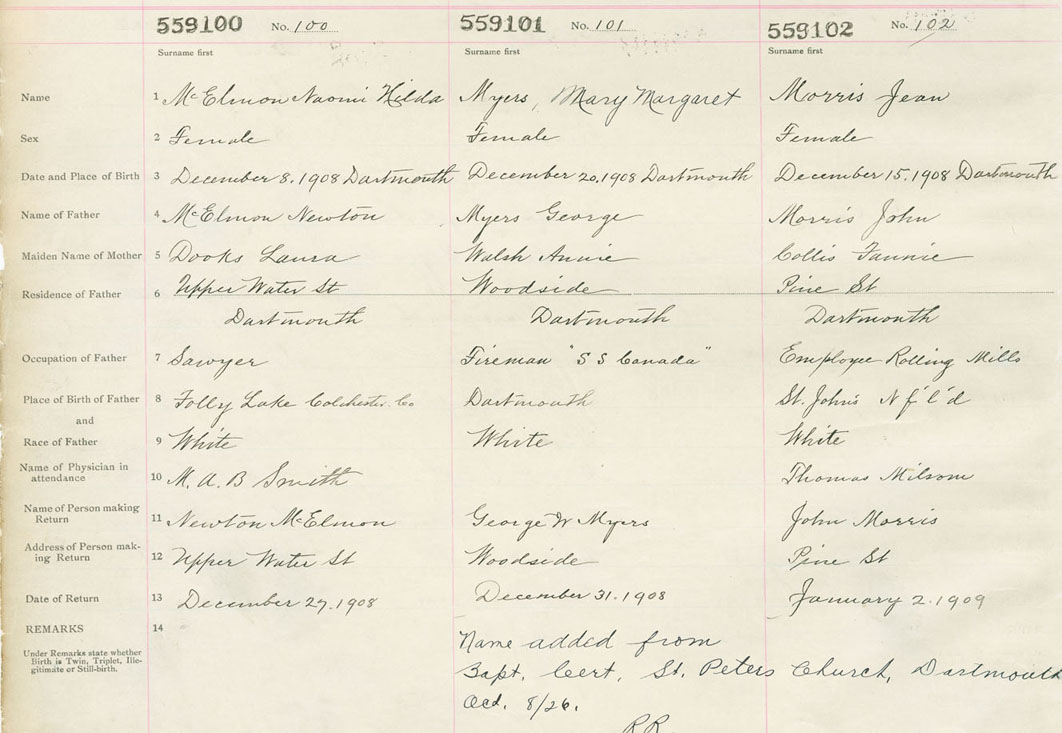 559100 No. 100 559101 No. 101 559102 No. 102
Surname first Surname first Surname first
Name 1 McElmon Naomi Hilda Myers, Mary Margaret Morris Jean
Sex 2 Female Female Female
Date and Place of Birth 3 December 8. 1908 Dartmouth December 20. 1908 Dartmouth December 15. 1908 Dartmouth
Name of Father 4 McElmon Newton Myers George Morris John
Maiden Name of Mother 5 Dooks Laura Walsh Annie Collis Fannie
Residence of Father 6 Upper Water St Woodside Pine St
Dartmouth Dartmouth Dartmouth
Occupation of Father 7 Sawyer Fireman "S S Canada" Employee Rolling Mills
Place of Birth of Father 8 Folly Lake Colchester Co Dartmouth St. John's N f'l'd
and
Race of Father 9 White White White
Name of Physician in
attendance 10 M. A. B Smith Thomas Milsom
Name of Person making
Return 11 Newton McElmon George W Myers John Morris
Address of Person mak-
ing Return 12 Upper Water St Woodside Pine St
Date of Return 13 December 27. 1908 December 31. 1908 January 2. 1909
REMARKS 14
Under Remarks state whether
Birth is Twin, Triplet, Ille-
gitimate or Still-birth.
Name added from
Bapt. Cert. St. Peters Church, Dartmouth
Oct. 8/26.
RR